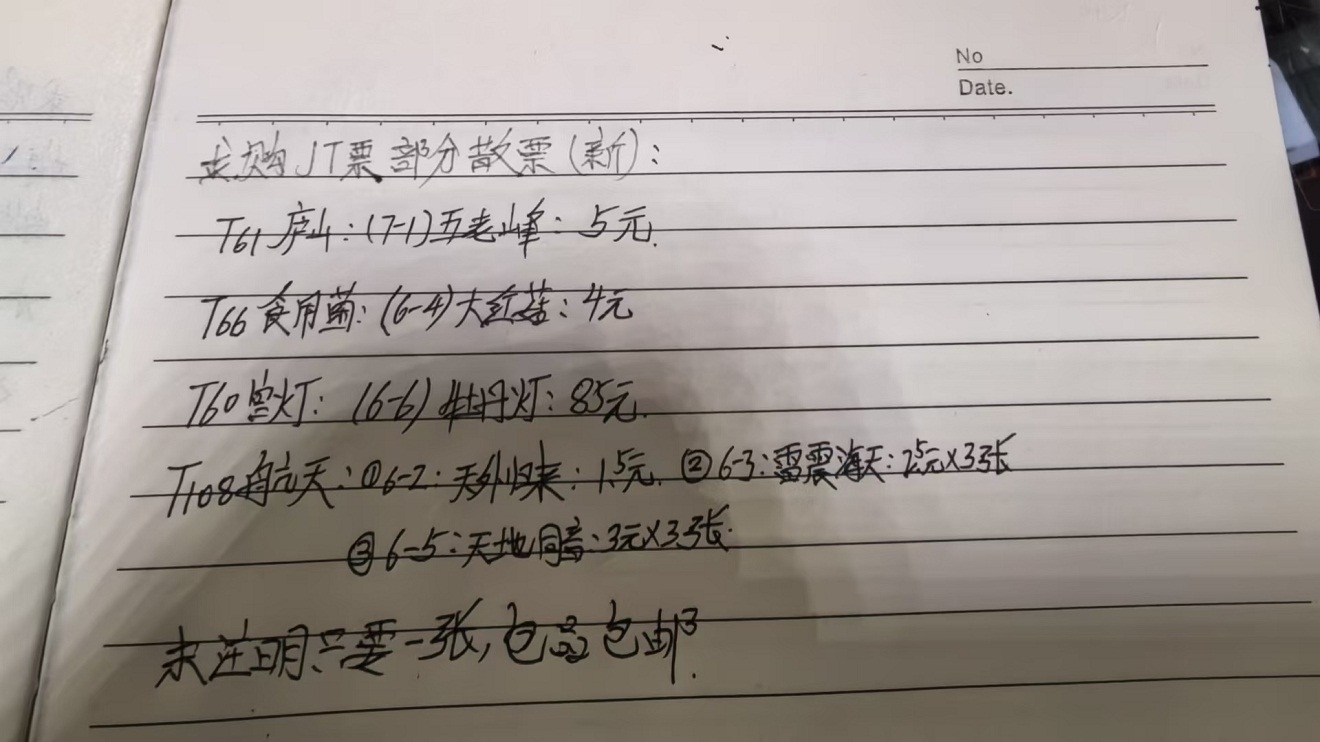 No
Date.
求购JT票部分散票(新):
T61庐山:(7-1)五老峰:5元.
T66食用菌:(6-4)大红菇:4元
T60宫灯:(6-6)牡丹灯:85元.
T108航天:①6-2:天外归来:1.5元.②6-3:雷震海天:2.5元×3张
③6-5:天地同音:3元×3张.
未注明只要一张,包品包邮.